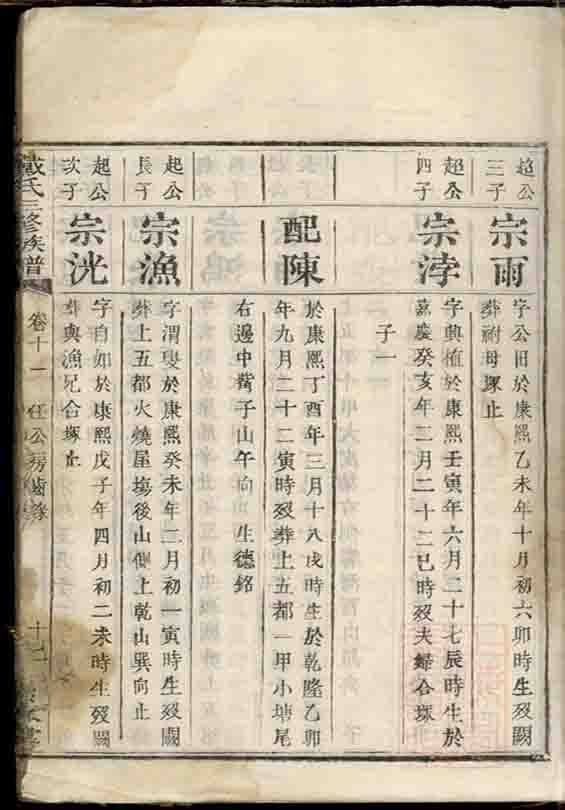 超公
三子
宗雨
字公田於康熙乙未年十月初六卯時生歿闕
葬祔母塚止
超公
四子
宗浡
字興植於康熙壬寅年六月二十七辰時生於
嘉慶癸亥年二月二十二巳時歿夫婦合塚
子一
配陳
於康熙丁酉年三月十八戌時生於乾隆乙卯
年九月二十二寅時歿葬上五都一甲小塘尾
右邊中嘴子山午向 生德銘
起公
長子
宗漁
字渭叟於康熙癸未年二月初一寅時生歿闕
葬上五都火燒屋塲後山側上乾山巽向止
起公
次子
宗洸
字自如於康熙戊子年四月初二未時生歿闕
葬與漁兄合塚止
戴氏三修族譜
卷十一 任公房齒錄